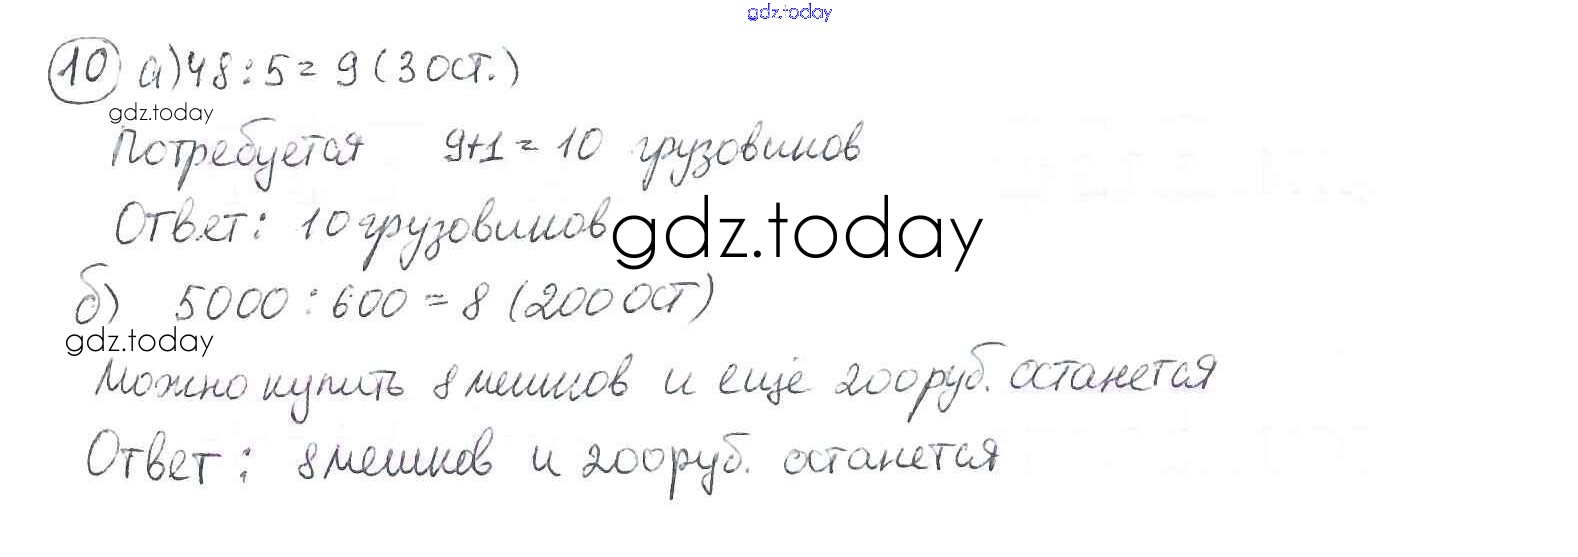 gdz.today
10 а) 48 : 5 = 9 (3 ост.)
gdz.today
Потребуется 9+1 = 10 грузовиков
Ответ: 10 грузовиков
gdz.today
б) 5000 : 600 = 8 (200 ост)
gdz.today
Можно купить 8 мешков и еще 200 руб. останется
Ответ: 8 мешков и 200 руб. останется